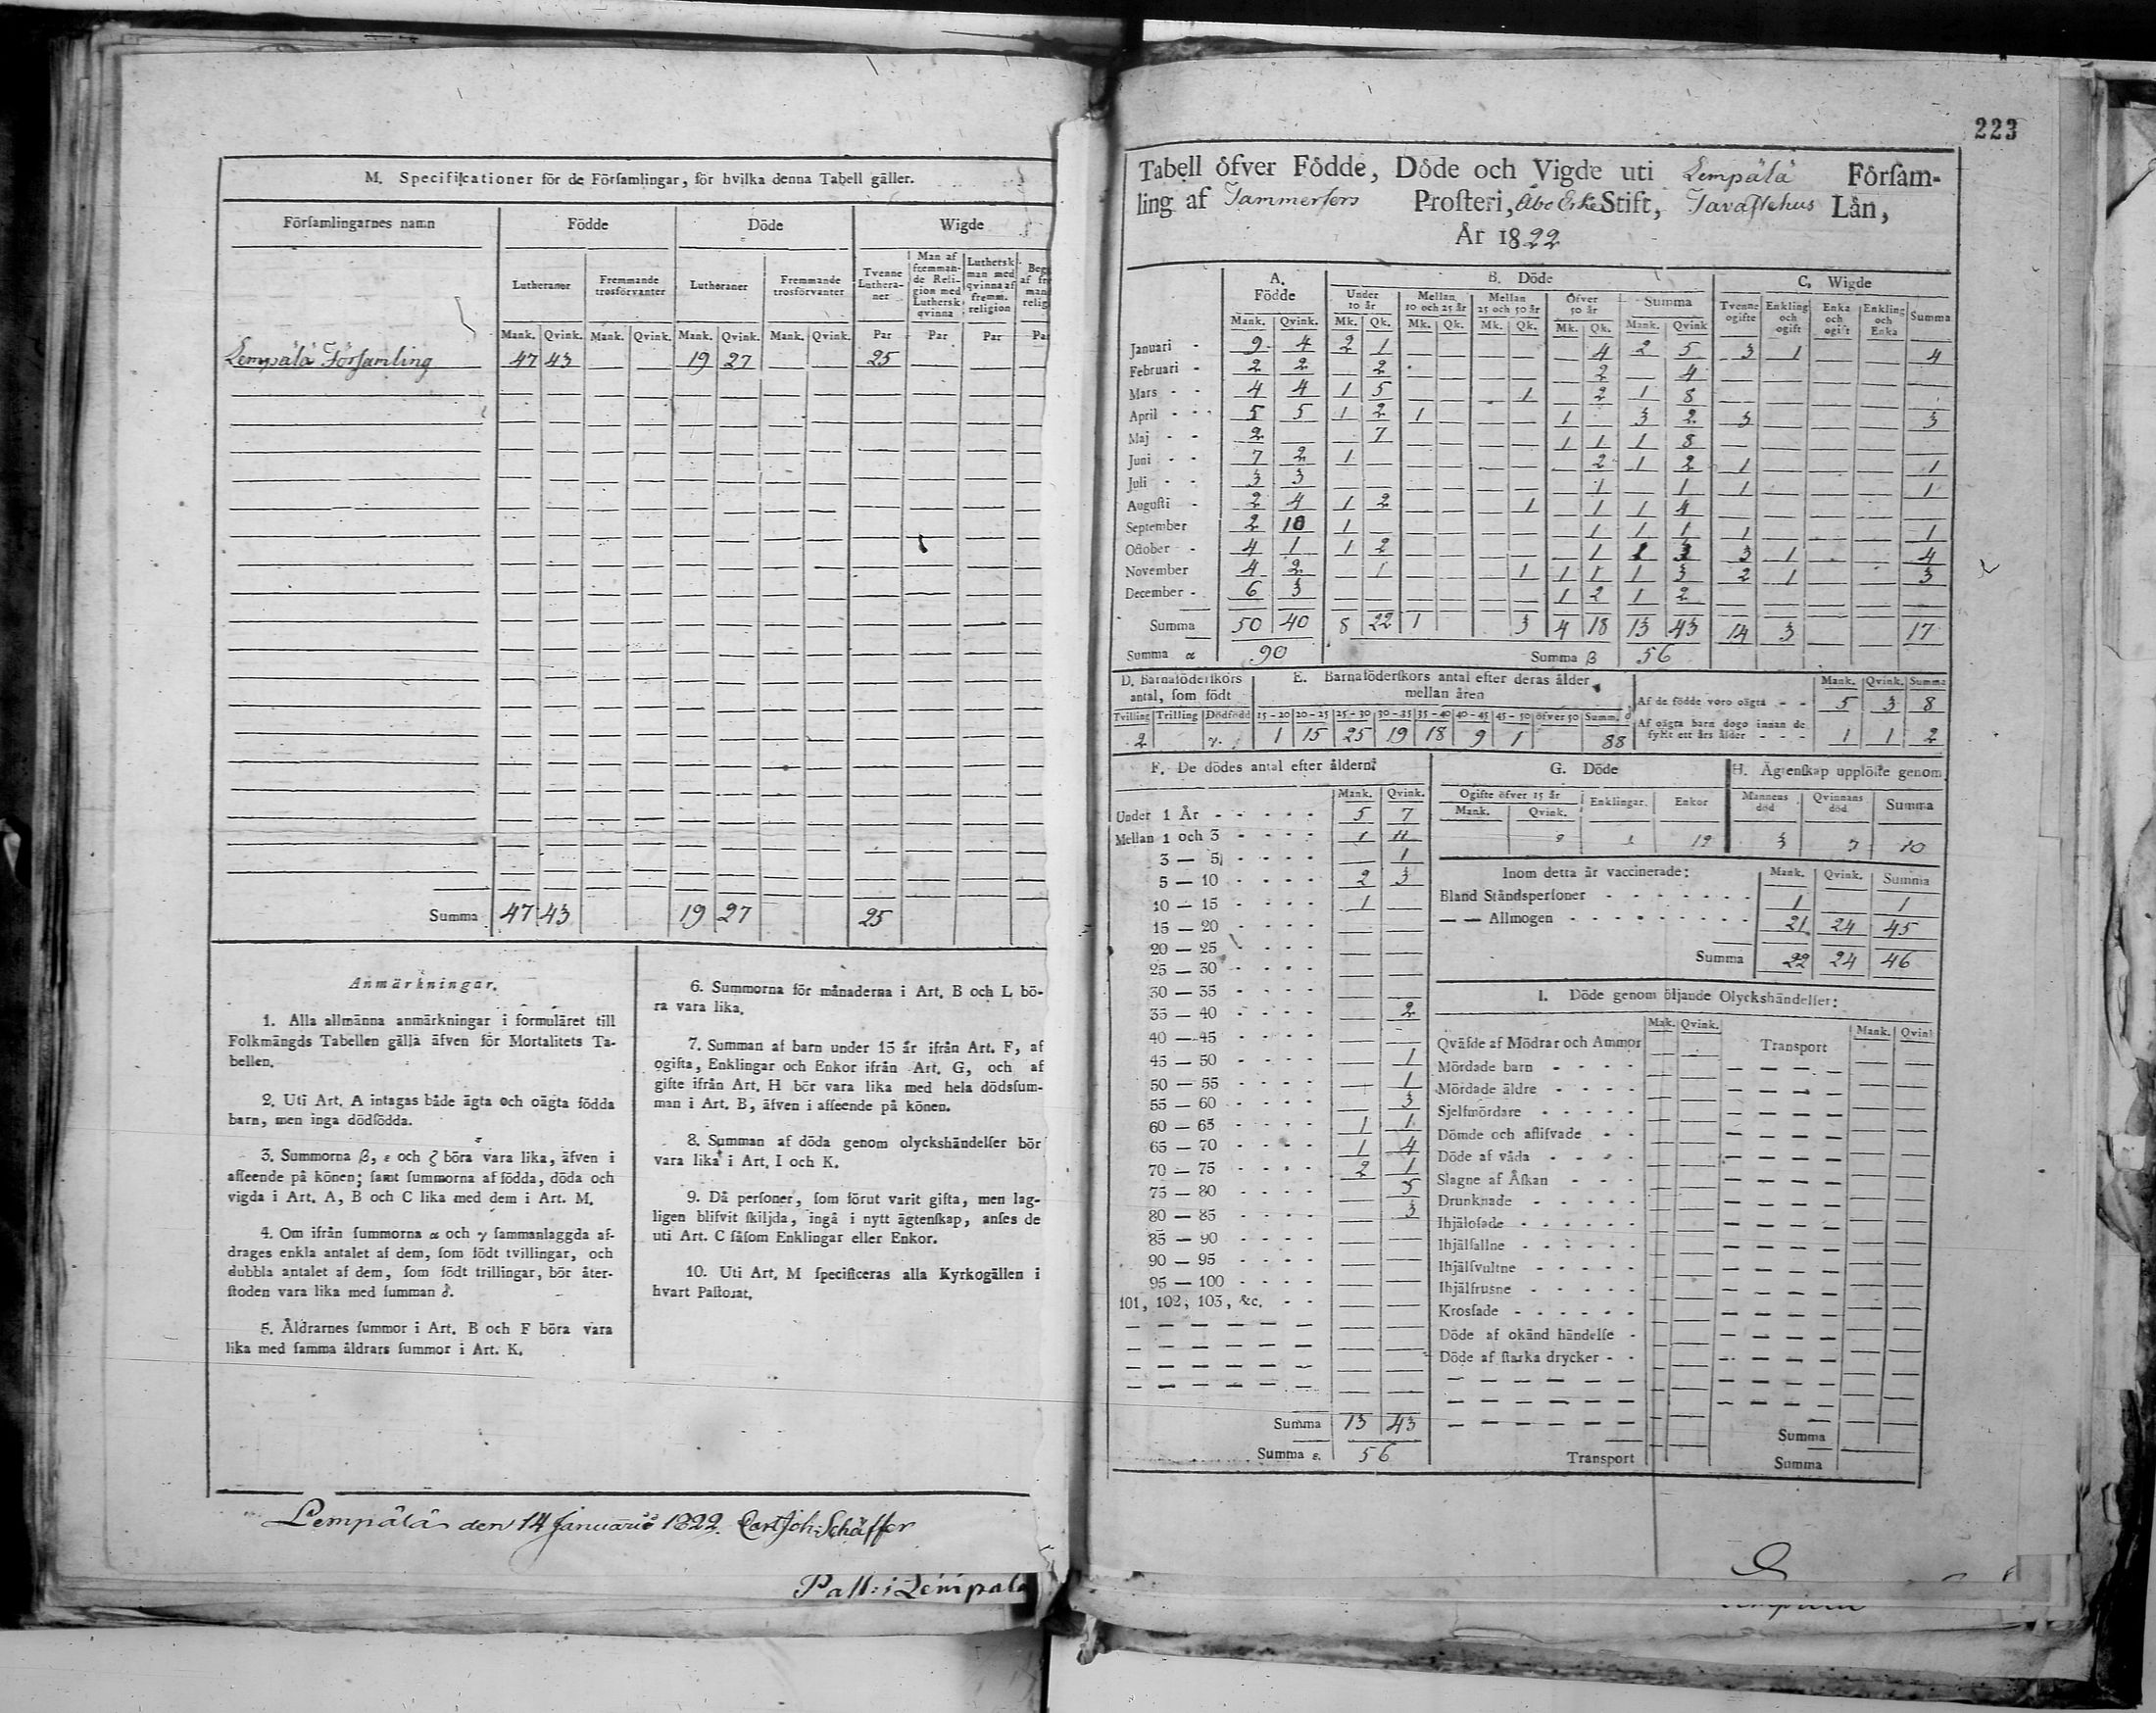 M. Specificationer för de Församlingar, för hvilka denna Tabell gäller.
Församlingarnes namn Födde Döde Wigde
Lutheraner Fremmande trosförvanter Lutheraner Fremmande trosförvanter Tvenne Lutheraner Man af fremmande Religion med Luthersk qvinna Luthersk man med qvinna af fremm. religion
Mank. Qvink. Mank. Qvink. Mank. Qvink. Mank. Qvink. Par Par Par
Lempälä Församling 47 43 — — 19 27 — — 25 — —
Summa 47 43 19 27 25
Anmärkningar.
1. Alla allmänna anmärkningar i formuläret till
Folkmängds Tabellen gälla äfven för Mortalitets Ta-
bellen.
2. Uti Art. A intagas både ägta och oägta födda
barn, men inga dödfödda.
3. Summorna β, ε och ζ böra vara lika, äfven i
afseende på könen; samt summorna af födda, döda och
vigda i Art. A, B och C lika med dem i Art. M.
4. Om ifrån summorna α och γ sammanlaggda af-
drages enkla antalet af dem, som födt tvillingar, och
dubbla antalet af dem, som födt trillingar, bör åter-
stoden vara lika med summan δ.
5. Åldrarnes summor i Art. B och F böra vara
lika med samma åldrars summor i Art. K.
6. Summorna för månaderna i Art. B och L bö-
ra vara lika.
7. Summan af barn under 15 år ifrån Art. F, af
ogifta, Enklingar och Enkor ifrån Art. G, och af
gifte ifrån Art. H bör vara lika med hela dödssum-
man i Art. B, äfven i afseende på könen.
8. Summan af döda genom olyckshändelser bör
vara lika i Art. I och K.
9. Då personer, som förut varit gifta, men lag-
ligen blifvit skiljda, ingå i nytt ägtenskap, anses de
uti Art. C såsom Enklingar eller Enkor.
10. Uti Art. M specificeras alla Kyrkogällen i
hvart Pastorat.
Lempälä den 14 Januarii 1822. Carl Joh: Schäffer
Past: i Lempälä
223
Tabell öfver Födde, Döde och Vigde uti Lempälä Församling
ling af Tammerfors Prosteri, Åbo Erke Stift, Tavastehus Län,
År 1822
A. Födde B. Döde C. Wigde
Under 10 år Mellan 10 och 25 år Mellan 25 och 50 år Öfver 50 år Summa Tvenne ogifte Enkling och ogift Enka och ogift Enkling och Enka Summa
Mank. Qvink. Mk. Qk. Mk. Qk. Mk. Qk. Mk. Qk. Mank. Qvink
Januari - 9 4 2 1 — — — — — 4 2 5 3 1 — — 4
Februari - 2 2 — 2 — — — — — 2 — 4 — — — — —
Mars - - 4 4 1 5 — — — 1 — 2 1 8 — — — — —
April - - 5 5 1 2 1 — — — 1 3 2 3 — — — 3
Maj - - 2 — 7 — — — — 1 1 1 8 — — — — —
Juni - - 7 2 1 — — — — — — 2 1 2 1 — — — 1
Juli - - 3 3 — — — — — — — 1 — 1 1 — — — 1
Augusti - 2 4 1 2 — — — 1 — 1 1 4 — — — — —
September 2 10 1 — — — — — — 1 1 1 1 — — — 1
October - 4 1 1 2 — — — — — 1 1 3 3 1 — — 4
November 4 2 — 1 — — — 1 1 1 1 3 2 1 — — 3
December - 6 3 — — — — — — 1 2 1 2 — — — — —
Summa 50 40 8 22 1 3 4 18 13 43 14 3 — — 17
Summa α 90 Summa β 56
D. Barnaföderskors antal, som födt
E. Barnaföderskors antal efter deras ålder mellan åren
Tvilling Trilling Dödfödd 15-20 20-25 25-30 30-35 35-40 40-45 45-50 öfver 50 Summ. δ
2 γ. 1 15 25 19 18 9 1 88
Mank. Qvink. Summa
Af de födde voro oägta - - 5 3 8
Af oägta barn dogo innan de
fyllt ett års ålder - - - 1 1 2
F. De dödes antal efter åldern:
Mank. Qvink.
Under 1 År - - - - - 5 7
Mellan 1 och 3 - - - - 1 11
3 — 5 - - - - — 1
5 — 10 - - - - 2 3
10 — 15 - - - - 1 —
15 — 20 - - - - — —
20 — 25 - - - — —
25 — 30 - - - - — —
30 — 35 - - - - — —
35 — 40 - - - - — 2
40 — 45 - - - - — —
45 — 50 - - - - — 1
50 — 55 - - - - — 1
55 — 60 - - - - — 3
60 — 65 - - - - 1 1
65 — 70 - - - - 1 4
70 — 75 - - - - 2 1
75 — 80 - - - - 5
80 — 85 - - - - — 3
85 — 90 - - - - — —
90 — 95 - - - - — —
95 — 100 - - - - — —
101, 102, 103, &c. - - — —
Summa 13 43
Summa ε. 56
G. Döde
Ogifte öfver 15 år Enklingar. Enkor
Mank. Qvink.
1 12
H. Ägtenskap upplöste genom
Mannens död Qvinnans död Summa
3 7 10
Inom detta år vaccinerade: Mank. Qvink. Summa
Bland Ståndspersoner - - - - - - - 1 1
— — Allmogen - - - - - - - - - 21 24 45
Summa 22 24 46
I. Döde genom öljande Olyckshändelser:
Mak. Qvink. Mank. Qvink
Qväfde af Mödrar och Ammor — Transport
Mördade barn - - - -
Mördade äldre - - - -
Sjelfmördare - - - - -
Dömde och aflifvade - -
Döde af våda - - - -
Slagne af Åskan - - -
Drunknade - - - - -
Ihjälosade - - - - - -
Ihjälfallne - - - - - -
Ihjälsvultne - - - - -
Ihjälfrusne - - - - -
Krossade - - - - - -
Döde af okänd händelse -
Döde af starka drycker - -
Summa
Transport Summa